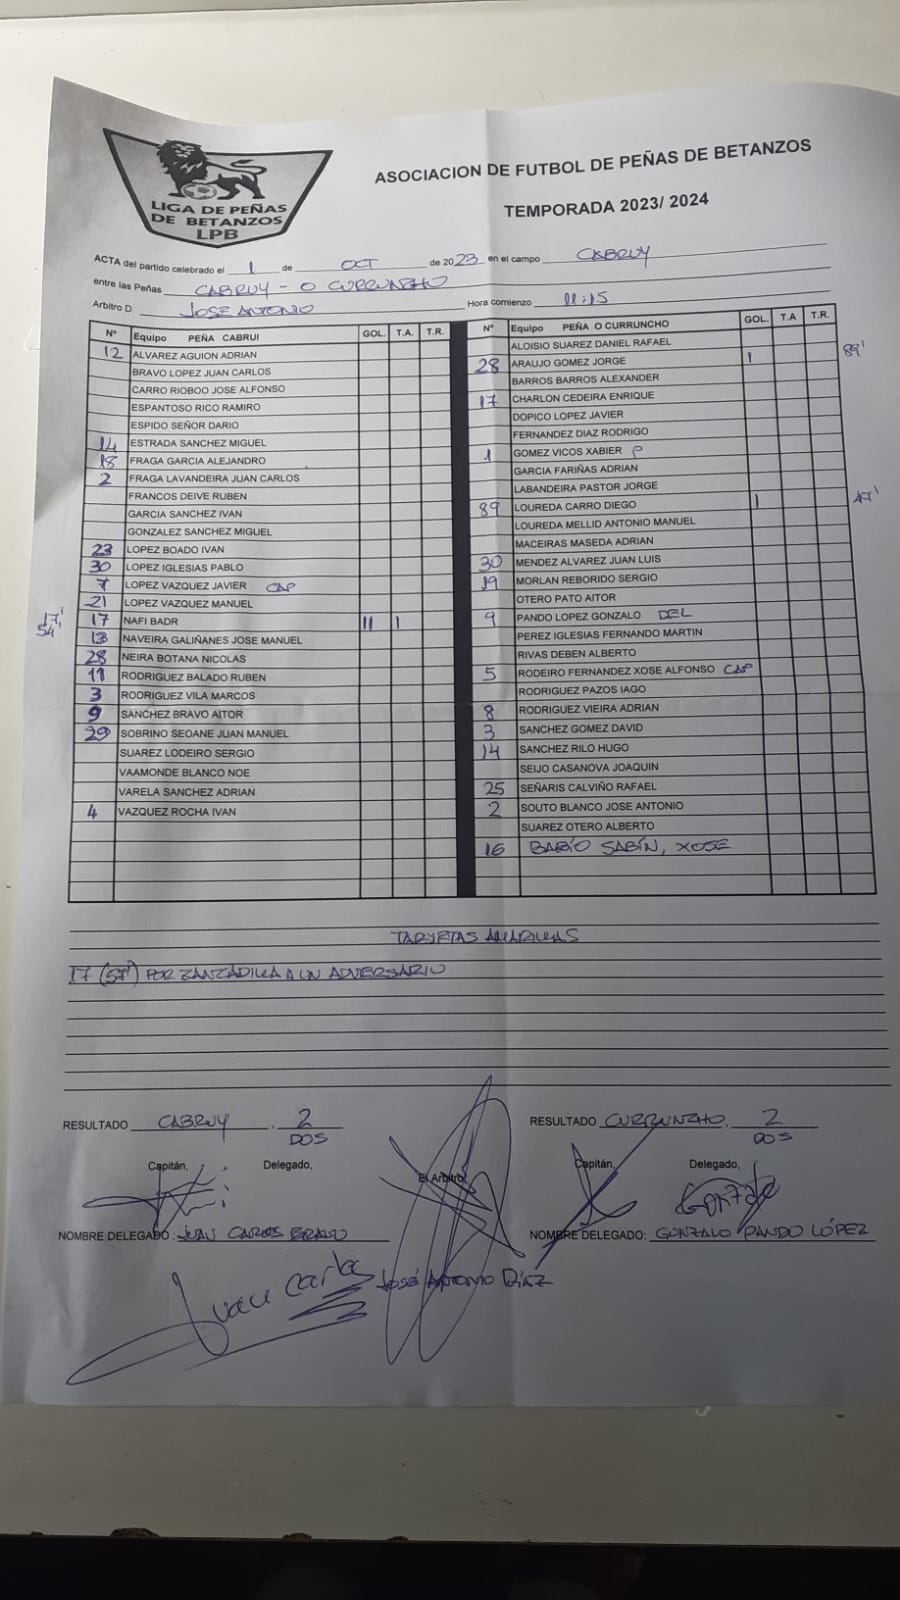 LIGA DE PEÑAS
DE BETANZOS
LPB
ASOCIACION DE FUTBOL DE PEÑAS DE BETANZOS
TEMPORADA 2023/ 2024
ACTA del partido celebrado el 1 de OCT de 2023 en el campo CABRUY
entre las Peñas CABRUY - O CURRUNCHO
Arbitro D. JOSE ANTONIO Hora comienzo 11:15
Nº Equipo PEÑA CABRUI GOL. T.A. T.R.
12 ALVAREZ AGUION ADRIAN
BRAVO LOPEZ JUAN CARLOS
CARRO RIOBOO JOSE ALFONSO
ESPANTOSO RICO RAMIRO
ESPIDO SEÑOR DARIO
14 ESTRADA SANCHEZ MIGUEL
18 FRAGA GARCIA ALEJANDRO
2 FRAGA LAVANDEIRA JUAN CARLOS
FRANCOS DEIVE RUBEN
GARCIA SANCHEZ IVAN
GONZALEZ SANCHEZ MIGUEL
23 LOPEZ BOADO IVAN
30 LOPEZ IGLESIAS PABLO
7 LOPEZ VAZQUEZ JAVIER CAP
21 LOPEZ VAZQUEZ MANUEL
17 NAFI BADR II I
54'
13 NAVEIRA GALIÑANES JOSE MANUEL
28 NEIRA BOTANA NICOLAS
11 RODRIGUEZ BALADO RUBEN
3 RODRIGUEZ VILA MARCOS
9 SANCHEZ BRAVO AITOR
29 SOBRINO SEOANE JUAN MANUEL
SUAREZ LODEIRO SERGIO
VAAMONDE BLANCO NOE
VARELA SANCHEZ ADRIAN
4 VAZQUEZ ROCHA IVAN
Nº Equipo PEÑA O CURRUNCHO GOL. T.A T.R.
ALOISIO SUAREZ DANIEL RAFAEL
28 ARAUJO GOMEZ JORGE I 89'
BARROS BARROS ALEXANDER
17 CHARLON CEDEIRA ENRIQUE
DOPICO LOPEZ JAVIER
FERNANDEZ DIAZ RODRIGO
1 GOMEZ VICOS XABIER P
GARCIA FARIÑAS ADRIAN
LABANDEIRA PASTOR JORGE
89 LOUREDA CARRO DIEGO I 47'
LOUREDA MELLID ANTONIO MANUEL
MACEIRAS MASEDA ADRIAN
30 MENDEZ ALVAREZ JUAN LUIS
19 MORLAN REBORIDO SERGIO
OTERO PATO AITOR
9 PANDO LOPEZ GONZALO DEL
PEREZ IGLESIAS FERNANDO MARTIN
RIVAS DEBEN ALBERTO
5 RODEIRO FERNANDEZ XOSE ALFONSO CAP
RODRIGUEZ PAZOS IAGO
8 RODRIGUEZ VIEIRA ADRIAN
3 SANCHEZ GOMEZ DAVID
14 SANCHEZ RILO HUGO
SEIJO CASANOVA JOAQUIN
25 SEÑARIS CALVIÑO RAFAEL
2 SOUTO BLANCO JOSE ANTONIO
SUAREZ OTERO ALBERTO
16 BABÍO SABÍN, XOSE
TARJETAS AMARILLAS
17 (57') POR ZANZADILLA A UN ADVERSARIO
RESULTADO CABRUY . 2
DOS
RESULTADO CURRUNCHO. 2
DOS
Capitán, Delegado, El Arbitro Capitán, Delegado,
Gonzalo
NOMBRE DELEGADO: JUAN CARLOS BRAVO
NOMBRE DELEGADO: GONZALO PANDO LÓPEZ
Juan Carlos
JOSÉ ANTONIO DÍAZ